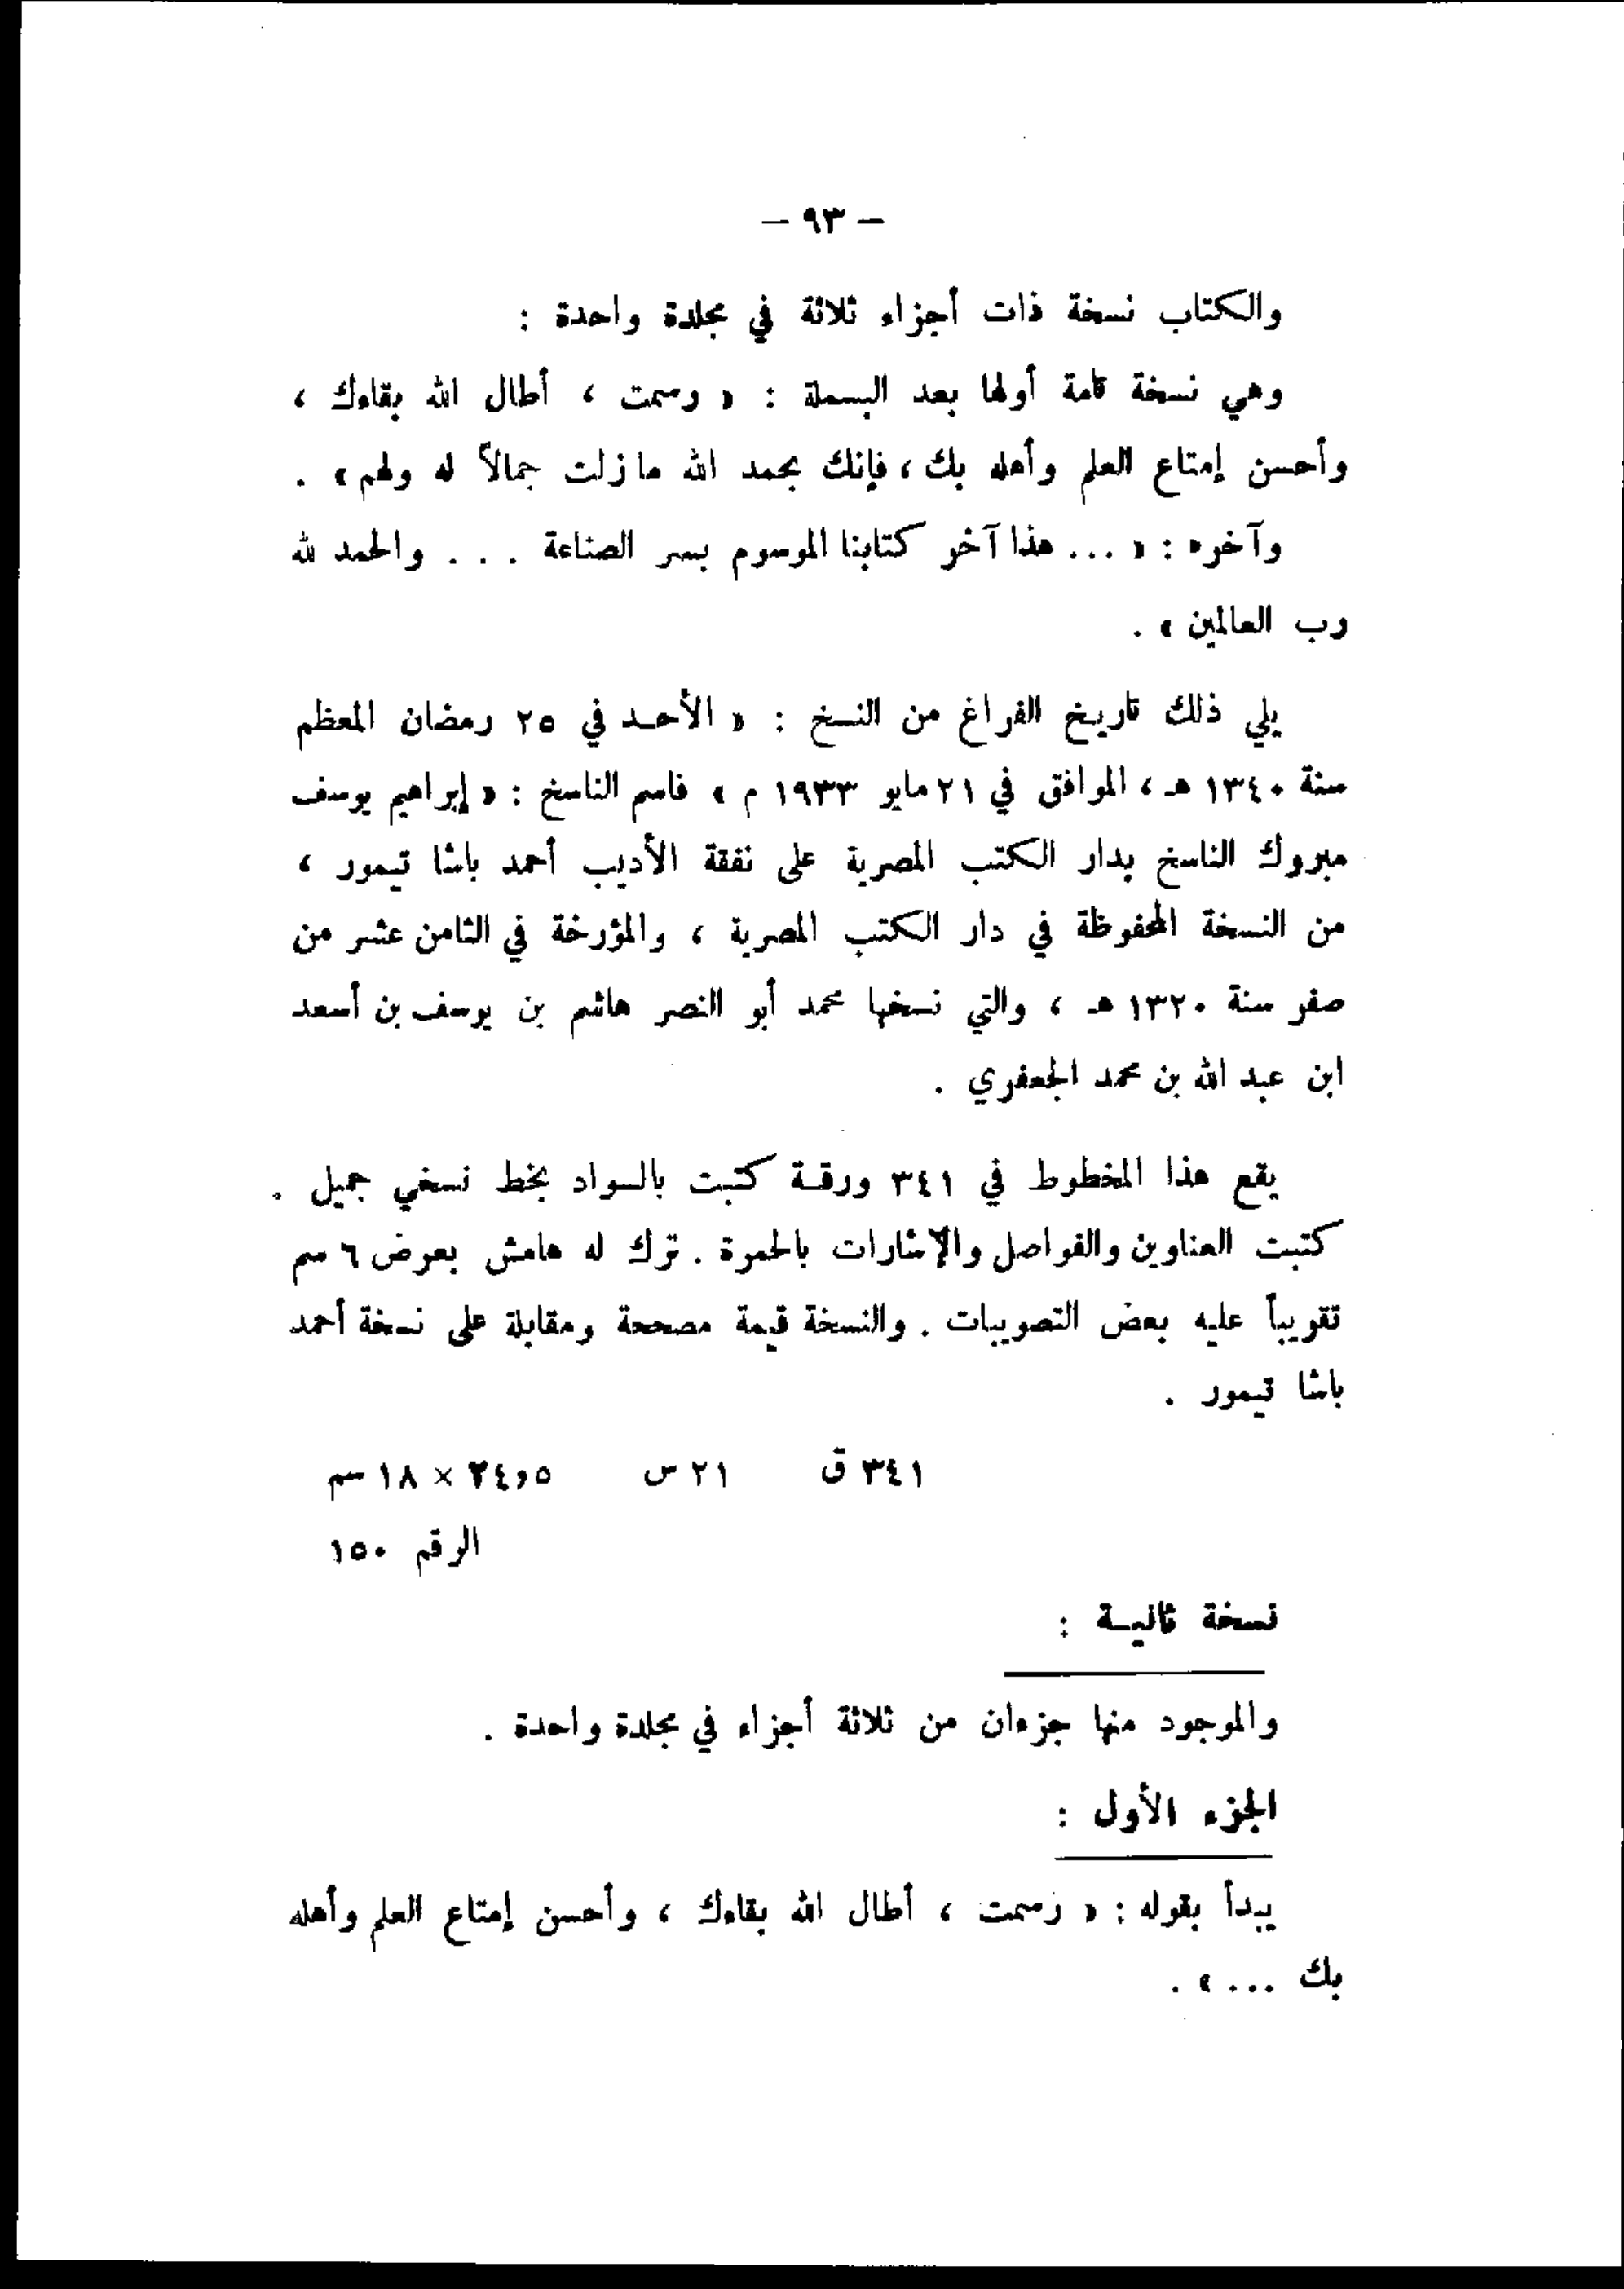 — ٩٣ —
والكتاب نسخة ذات أجزاء ثلاثة في مجلدة واحدة :
وهي نسخة تامة أولها بعد البسملة : « رسمت ، أطال الله بقاءك ،
وأحسن إمتاع العلم وأهله بك ، فإنك بحمد الله ما زلت جمالاً له ولهم » .
وآخره : « ... هذا آخر كتابنا الموسوم بسر الصناعة . . . والحمد لله
رب العالمين » .
يلي ذلك تاريخ الفراغ من النسخ : « الأحد في ٢٥ رمضان المعظم
سنة ١٣٤٠ هـ ، الموافق في ٢١ مايو ١٩٣٣ م » فاسم الناسخ : « إبراهيم يوسف
مبروك الناسخ بدار الكتب المصرية على نفقة الأديب أحمد باشا تيمور ،
من النسخة المحفوظة في دار الكتب المصرية ، والمؤرخة في الثامن عشر من
صفر سنة ١٣٢٠ هـ ، والتي نسخها محمد أبو النصر هاشم بن يوسف بن أسعد
ابن عبد الله بن محمد الجعفري .
يقع هذا المخطوط في ٣٤١ ورقة كتبت بالسواد بخط نسخي جميل .
كتبت العناوين والفواصل والإشارات بالحمرة . ترك له هامش بعرض ٦ سم
تقريباً عليه بعض التصويبات . والنسخة قيمة مصححة ومقابلة على نسخة أحمد
باشا تيمور .
٣٤١ ق ٢١ س ٢٤,٥ × ١٨ سم
الرقم ١٥٠
نسخة ثانية :
والموجود منها جزءان من ثلاثة أجزاء في مجلدة واحدة .
الجزء الأول :
يبدأ بقوله : « رسمت ، أطال الله بقاءك ، وأحسن إمتاع العلم وأهله
بك ... » .